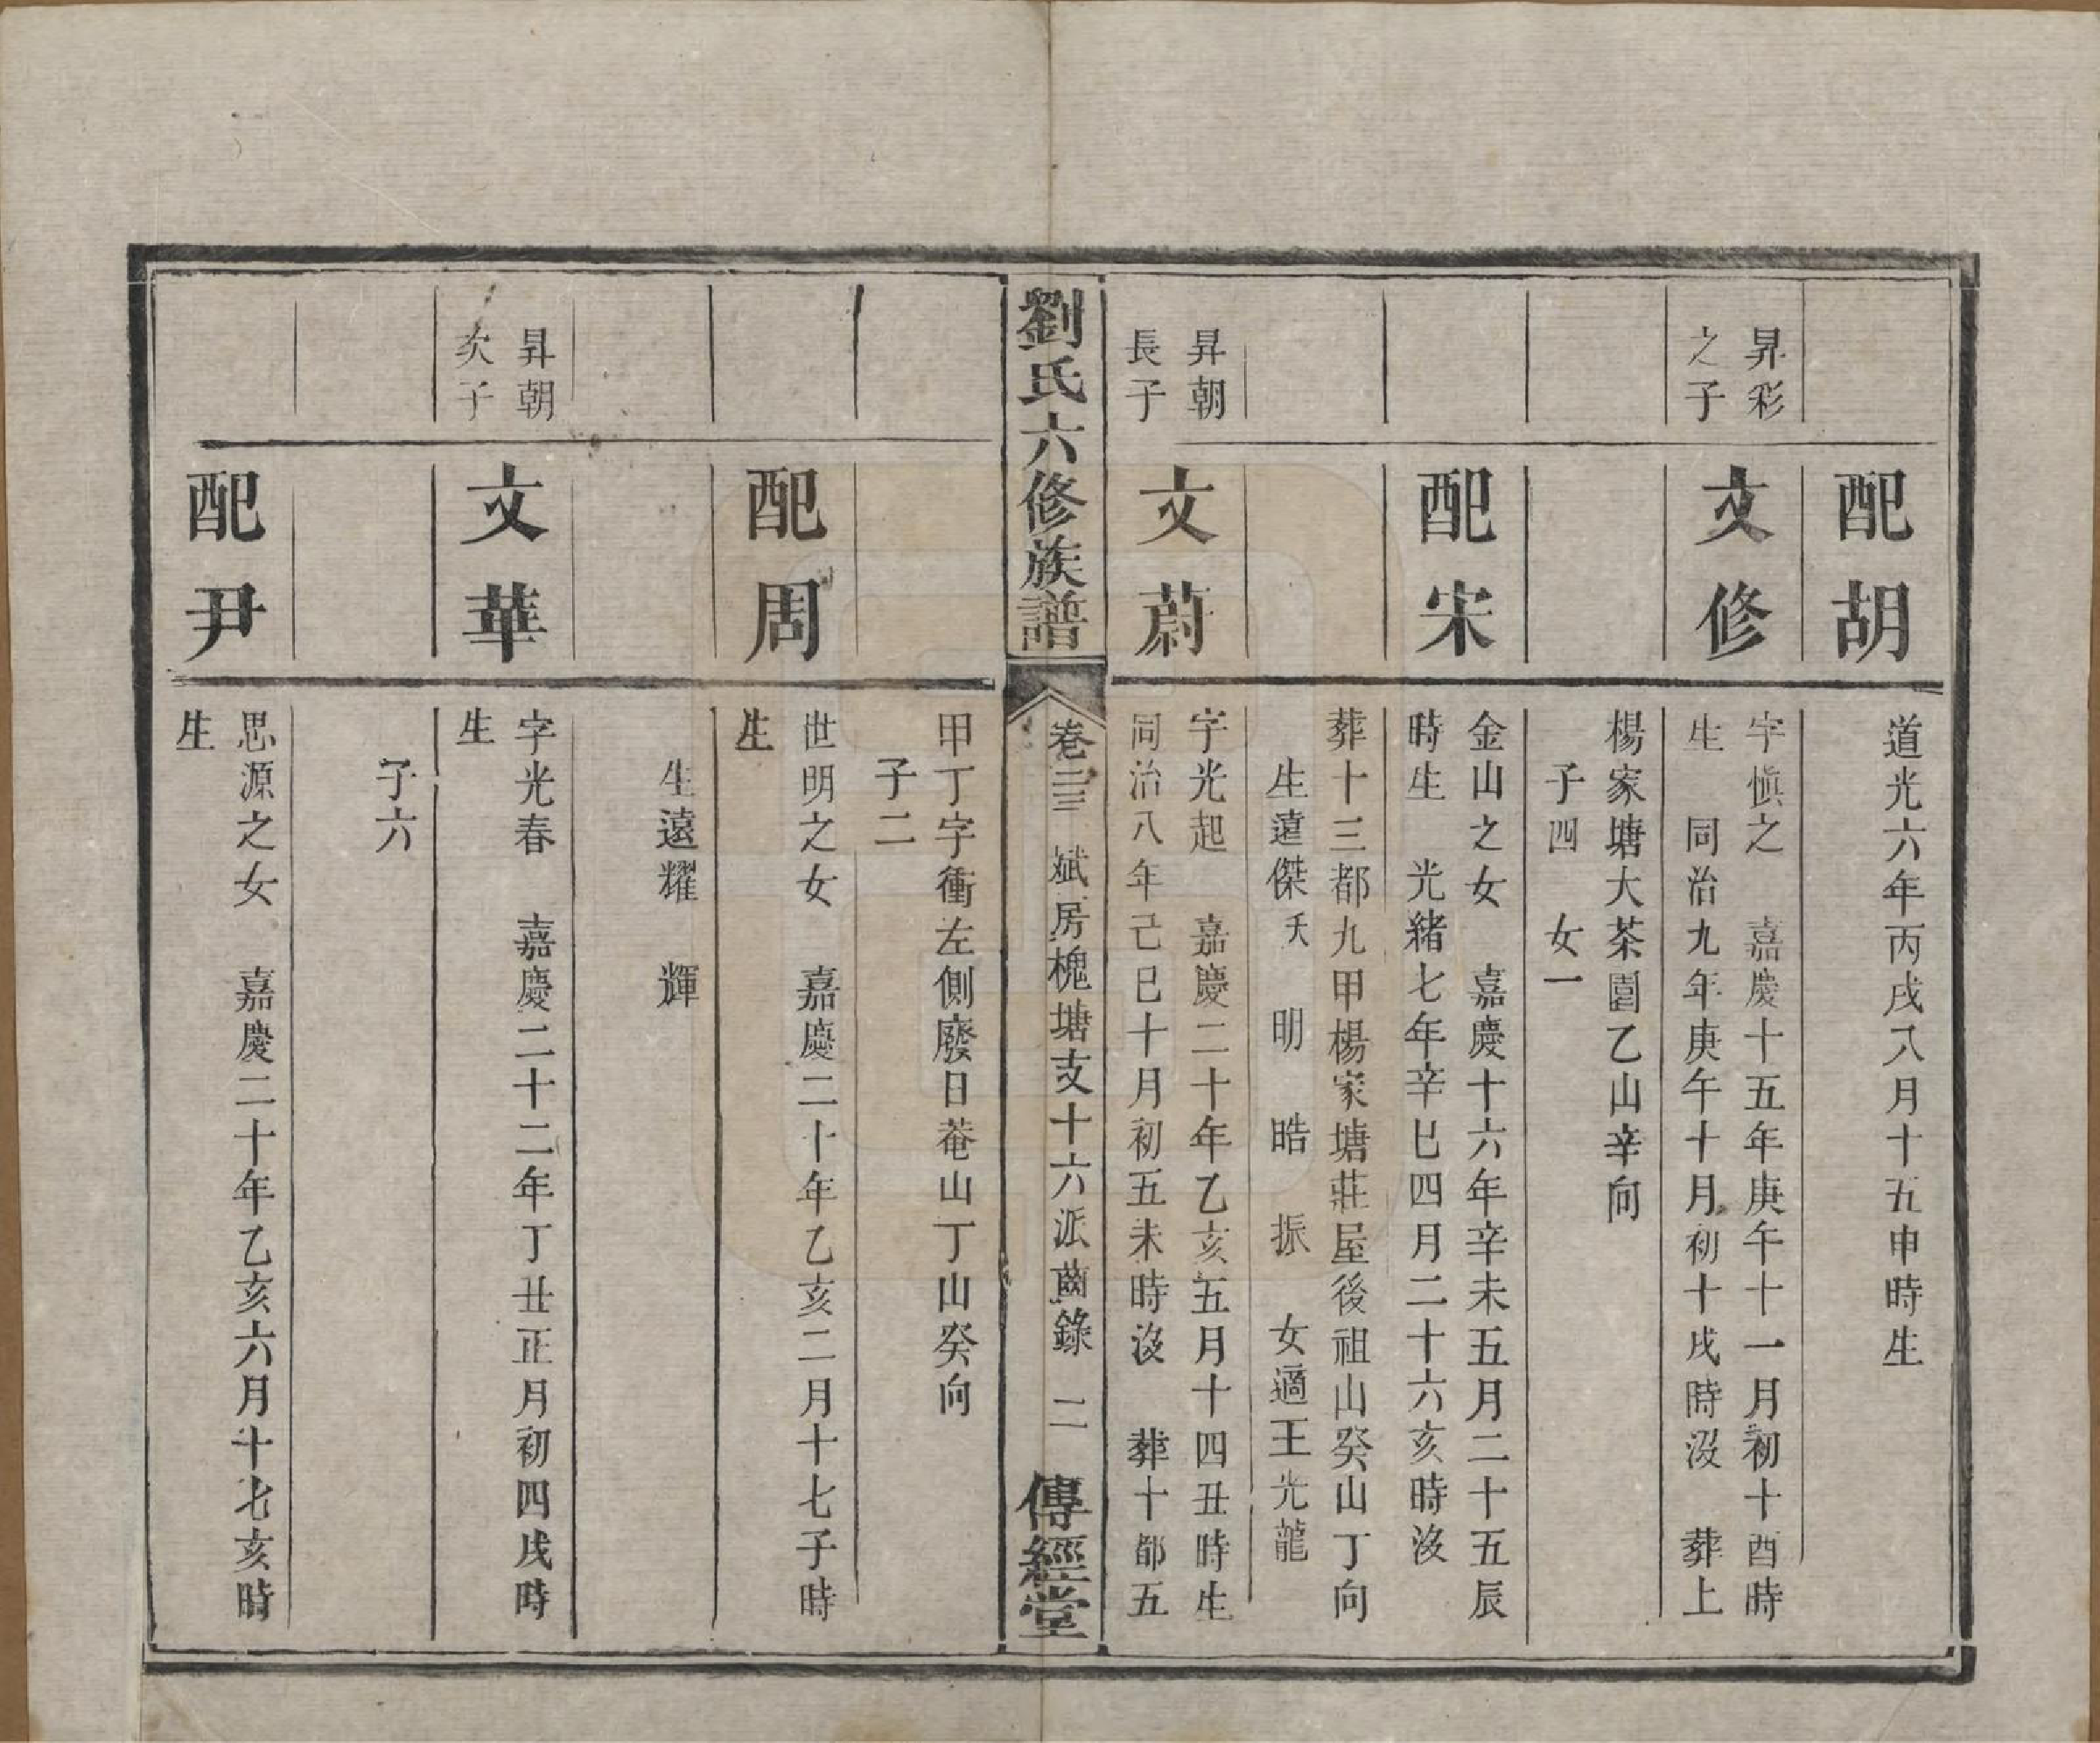 配胡
道光六年丙戌八月十五申時生
昇彩
之子
文修
字慎之 嘉慶十五年庚午十一月初十酉時
生 同治九年庚午十月初十戌時沒 葬上
楊家塘大茶園乙山辛向
子四 女一
配宋
金山之女 嘉慶十六年辛未五月二十五辰
時生 光緒七年辛巳四月二十六亥時沒
葬十三都九甲楊家塘莊屋後祖山癸山丁向
生遠傑夭 明 晧 振 女適王光龍
昇朝
長子
文蔚
字光起 嘉慶二十年乙亥五月十四丑時生
同治八年己巳十月初五未時沒 葬十都五
劉氏六修族譜
卷二三 斌房槐塘支十六派齒錄 二
傳經堂
甲丁字衝左側廢日菴山丁山癸向
子二
配周
世明之女 嘉慶二十年乙亥二月十七子時
生
生遠耀 輝
昇朝
次子
文華
字光春 嘉慶二十二年丁丑正月初四戌時
生
子六
配尹
思源之女 嘉慶二十年乙亥六月十七亥時
生